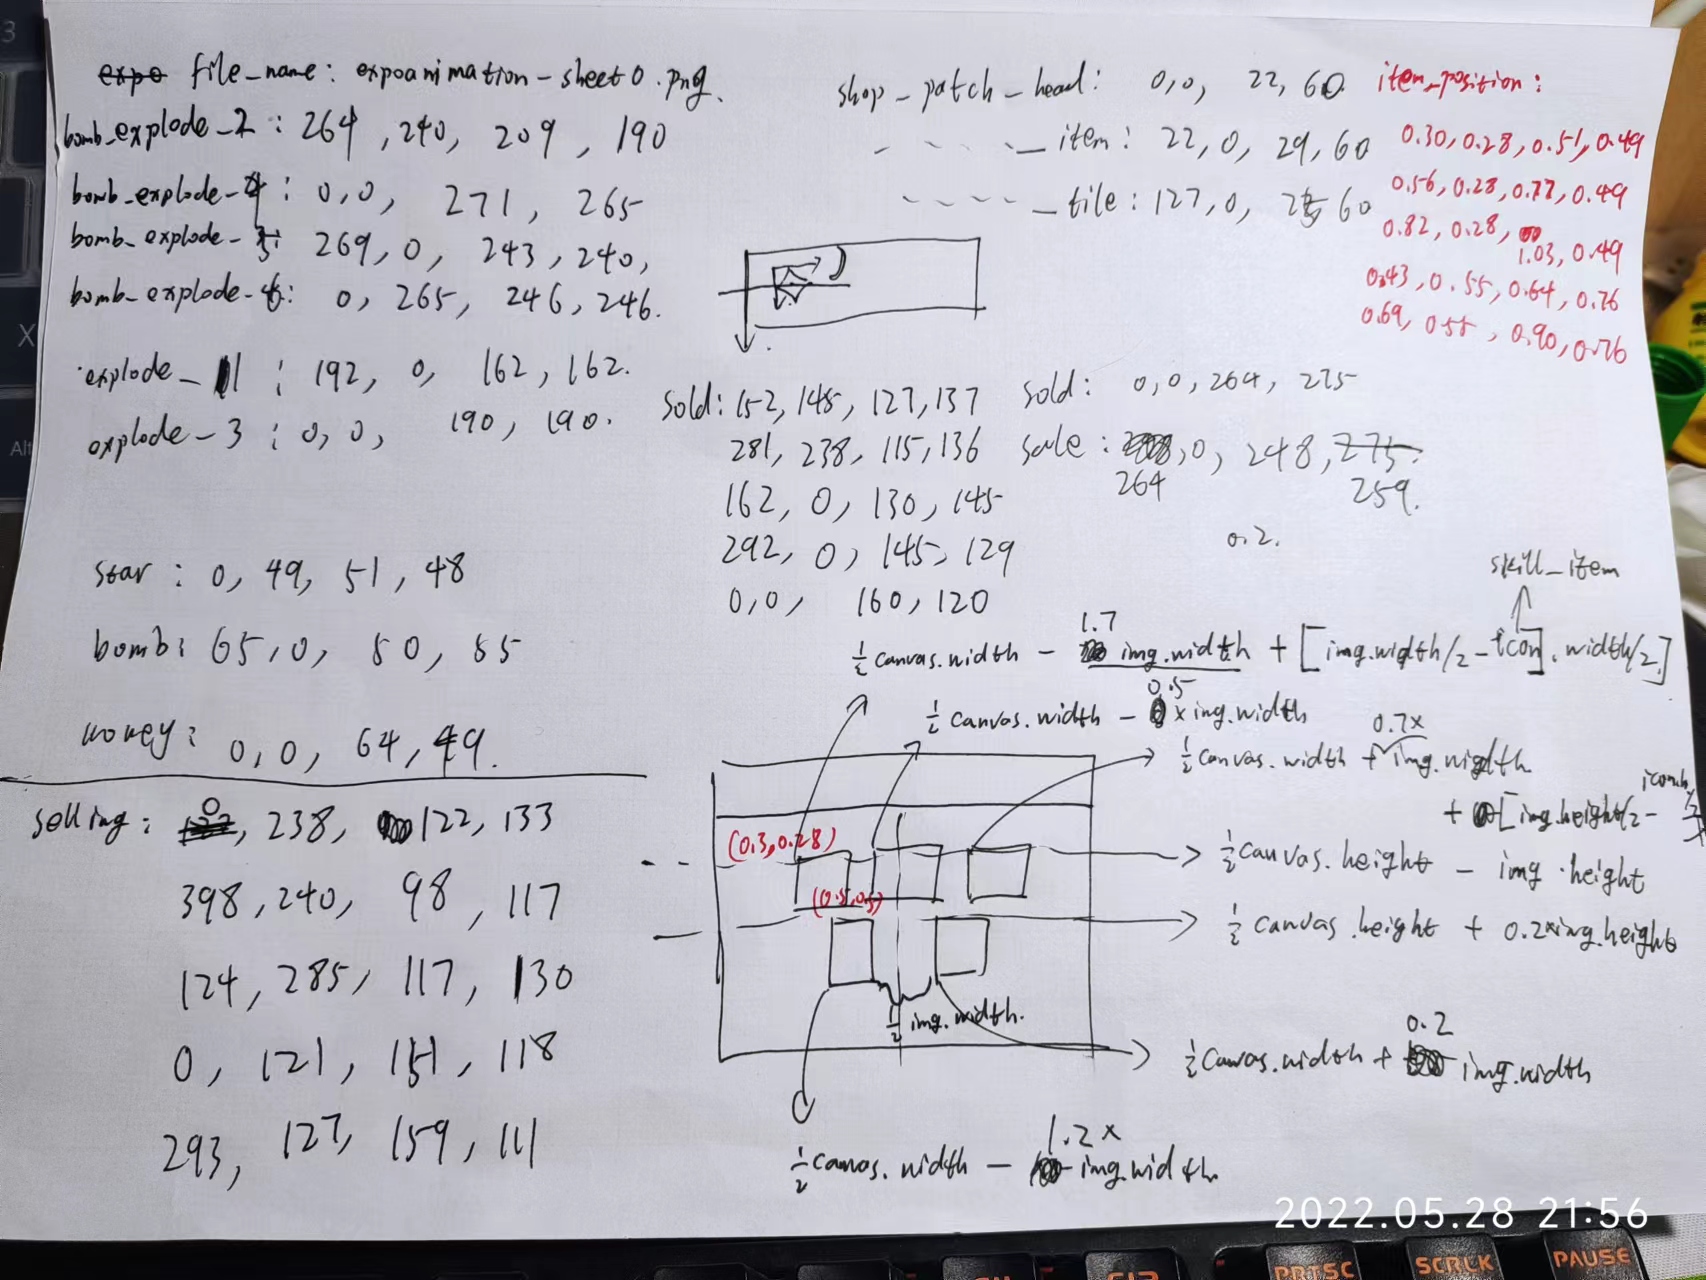 file_name: expoanimation-sheet0.png.
bomb_explode_2: 264, 240, 209, 190
bomb_explode_4: 0,0, 271, 265
bomb_explode_5: 269, 0, 243, 240,
bomb_explode_6: 0, 265, 246, 246.
explode_1: 192, 0, 162, 162.
explode_3: 0,0, 190, 190.
star: 0, 49, 51, 48
bomb: 65, 0, 50, 55
money: 0,0, 64, 49.
selling: 0, 238, 122, 133
398, 240, 98, 117
124, 285, 117, 130
0, 121, 151, 118
293, 127, 159, 111
shop_patch_head: 0,0, 22, 60
_item: 22, 0, 29, 60
_tile: 127, 0, 25, 60
item_position:
0.30, 0.28, 0.51, 0.49
0.56, 0.28, 0.77, 0.49
0.82, 0.28,
1.03, 0.49
0.43, 0.55, 0.64, 0.76
0.69, 0.55, 0.90, 0.76
sold: 152, 145, 127, 137
281, 238, 115, 136
162, 0, 130, 145
292, 0, 145, 129
0,0, 160, 120
sold: 0,0, 264, 275
sale: 264, 0, 248, 275.
259.
0.2.
skill_item
1.7
½ canvas.width - img.width + [img.width/2 - icon].width/2]
0.5
½ canvas.width - x img.width
0.7x
½ canvas.width + img.width
+ [img.height/2 -
(0.3, 0.28)
½ canvas.height - img.height
(0.5, 0.5)
½ canvas.height + 0.2ximg.height
½ img.width.
0.2
½ canvas.width + img.width
1.2x
½ canvas.width - img.width.
2022.05.28 21:56
3
X
Alt
PRTSC
SCRLK
PAUSE